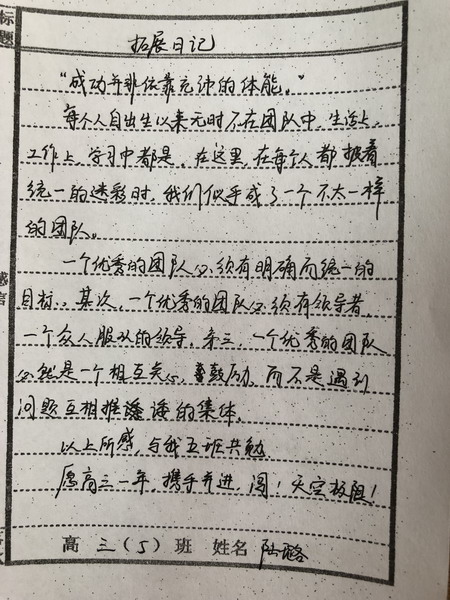 标题
拓展日记
“成功并非依靠充沛的体能。”
每个人自出生以来无时不在团队中,生活上、
工作上,学习中都是。在这里,在每个人都披着
统一的迷彩时,我们似乎成了一个不太一样
的团队。
一个优秀的团队必须有明确而统一的
目标。其次,一个优秀的团队必须有领导者,
一个众人服从的领导。第三,一个优秀的团队
必然是一个相互关心,鼓励,而不是遇到
问题互相推诿的集体。
以上所感,与我五班共勉
愿高三一年,携手并进,闯!天空极限!
感言
高三(5)班 姓名 陆璐